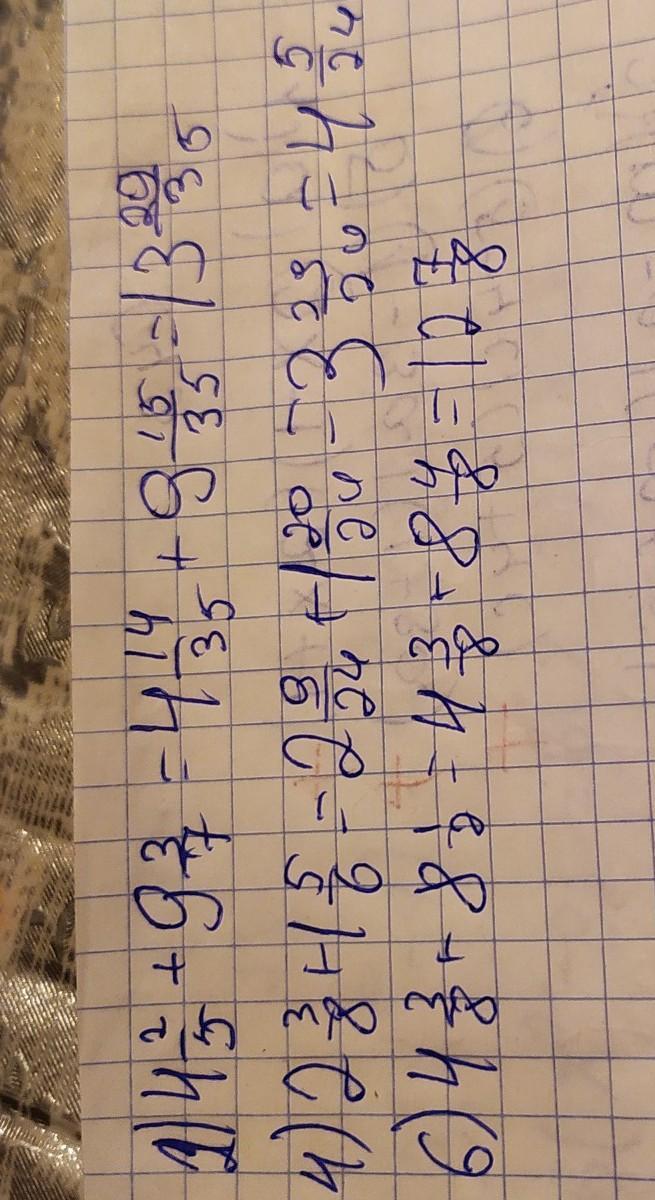 2) 4 2/5 + 9 3/7 = 4 14/35 + 9 15/35 = 13 29/35
4) 2 3/8 + 1 5/6 = 2 9/24 + 1 20/24 = 3 29/24 = 4 5/24
6) 4 3/8 + 8 1/2 = 4 3/8 + 8 4/8 = 12 7/8